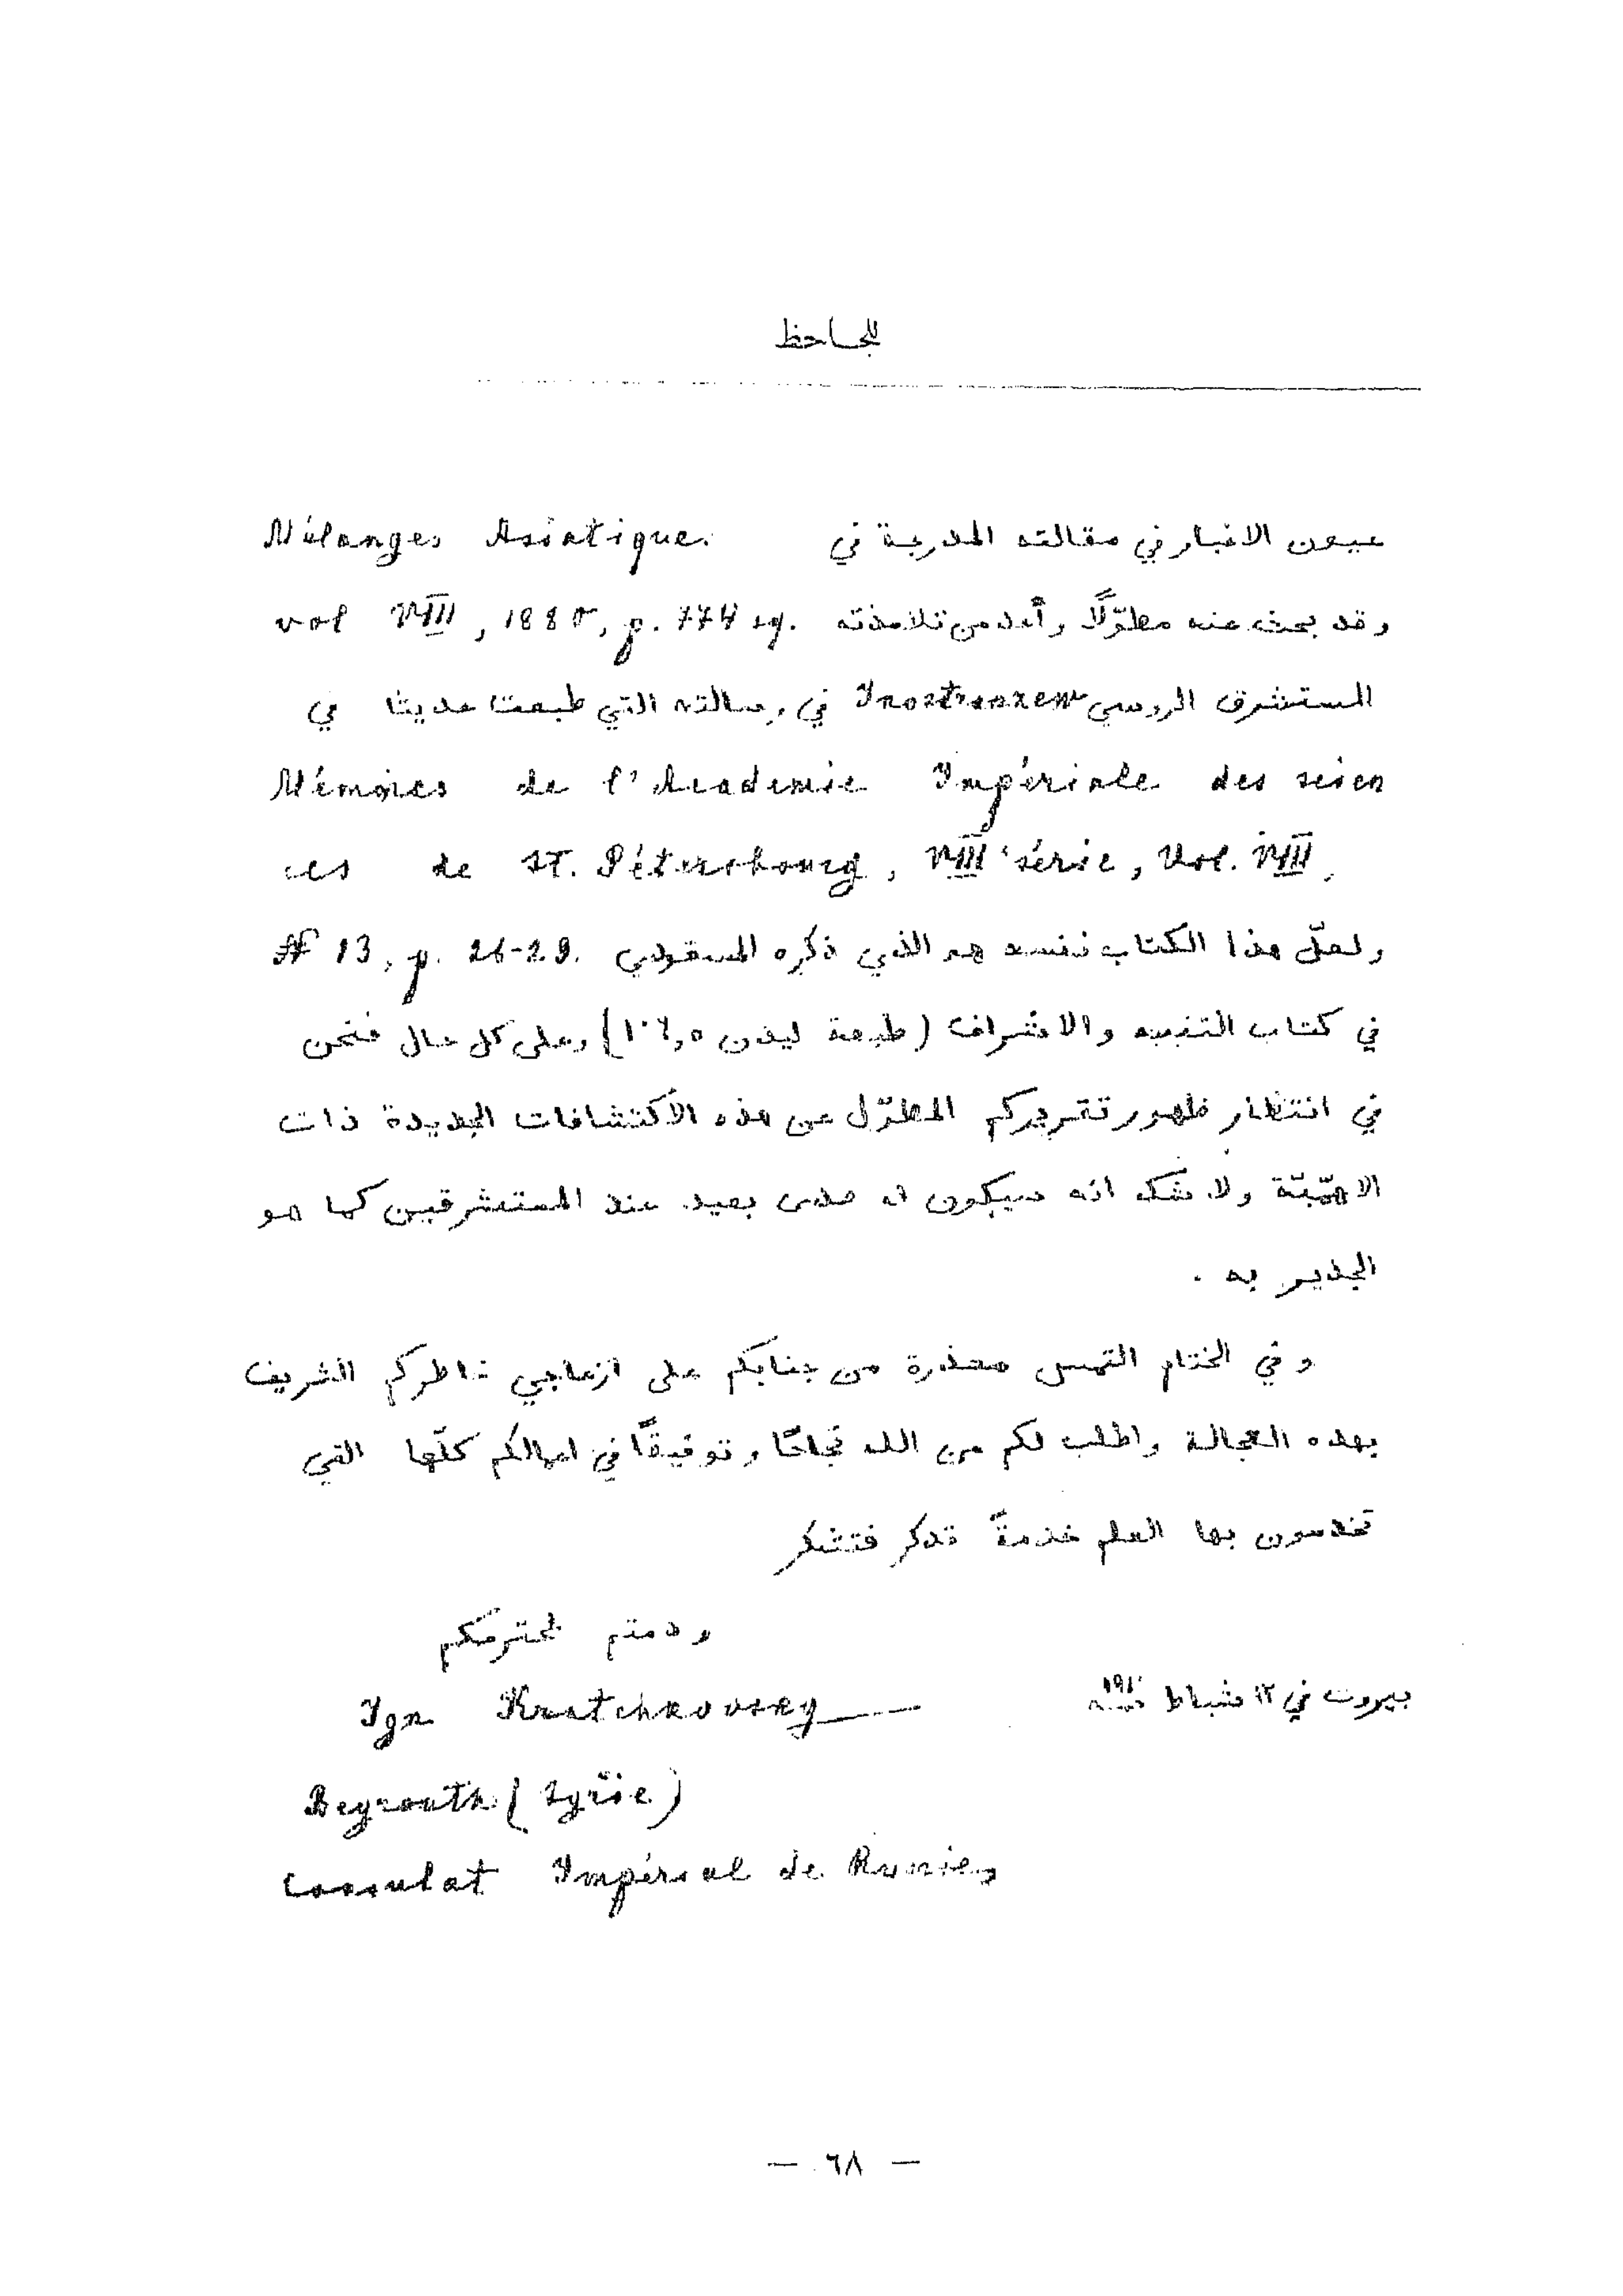 للجاحظ
عيون الاخبار في مقالته المدرجة في Mélanges Asiatique.
vol VIII, 1880, p. 774 sq. وقد بحث عنه مطوّلًا وأحد من تلامذته
المستشرق الروسي Inostranzew في رسالته التي طبعت حديثا في
Mémoires de l'Academie Impériale des scien
ces de St. Pétersbourg, VIII série, Vol. VIII,
№ 13, p. 26-29. ولعلّ هذا الكتاب نفسه هو الذي ذكره المسعودي
في كتاب التنبيه والاشراف (طبعة ليدن وعلى كل حال فنحن
في انتظار ظهور تقريركم المطوّل عن هذه الاكتشافات الجديدة ذات
الاهمّيّة ولا شك انه سيكون له صدى بعيد عند المستشرقين كما هو
الجدير به .
وفي الختام التمس معذرة من جنابكم على ازعاجي خاطركم الشريف
بهذه العجالة واطلب لكم من الله نجاحًا وتوفيقًا في اعمالكم كلّها التي
تخدمون بها العلم خدمةً تذكر فتشكر
ودمتم لمحترمكم
بيروت في ١٢ شباط سنة ١٩١٠
Ign Kratchkovsky
Beyrouth (Syrie)
Consulat Impérial de Russie,
— ٦٨ —